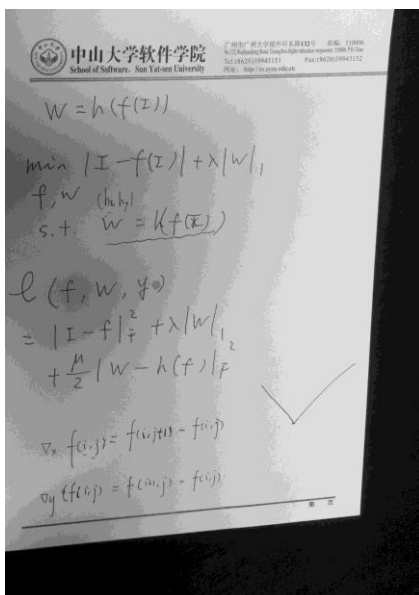 中山大学软件学院
School of Software, Sun Yat-sen University
广州市广州大学城外环东路132号 邮编: 510006
Tel:(8620)39943151 Fax:(8620)39943152
W = h(f(I))
min |I-f(I)| + λ|W|₁
f, w (hx,hy)
s.t W = h(f(I))
ℓ(f, W, y)
= |I-f|²_F + λ|W|₁
+ μ/2 |W - h(f)|²_F
∇x f(i,j) = f(i,j+1) - f(i,j)
∇y f(i,j) = f(i+1,j) - f(i,j)
第 页